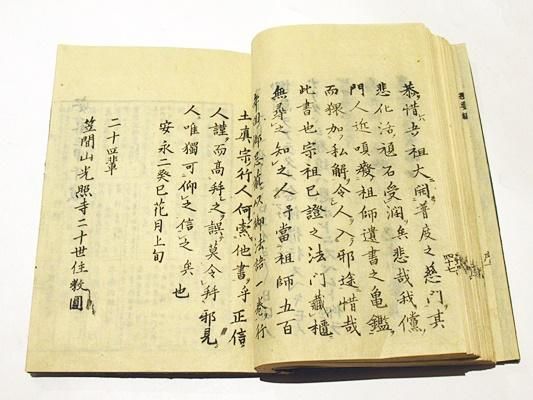 恭惜吾祖大開普度之慈門其
悲化洽頑石受潤矣悲哉我黨
門人近嗔發祖師遺書之亀鑑
而猥加私解令人入邪途惜哉
此書也宗祖已證之法門藏櫃
無尋之知之人予當祖師五百
年回 御法語一巻行
土真宗行人何索他書乎正信
人謹而高拜之誤莫令弄邪見
人唯獨可仰之信之矣也
安永二癸巳花月上旬
二十四輩
笠間山光照寺二十世住教圓
四十七